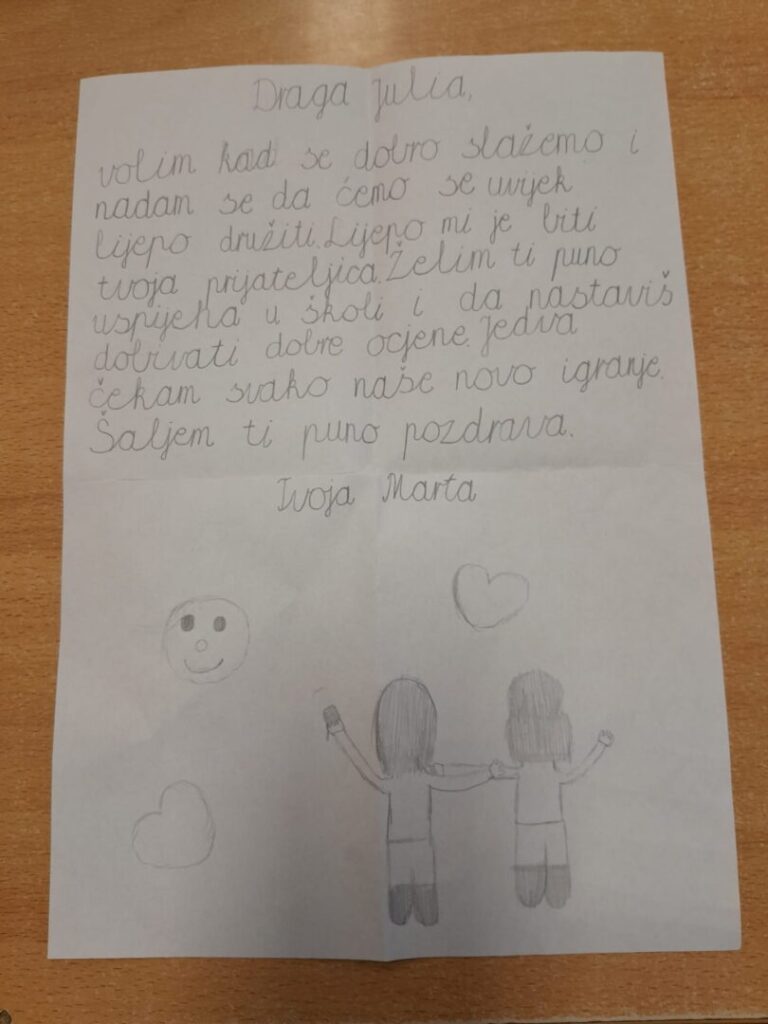 Draga Julia,
volim kad se dobro slažemo i
nadam se da ćemo se uvijek
lijepo družiti. Lijepo mi je biti
tvoja prijateljica. Želim ti puno
uspijeha u školi i da nastaviš
dobivati dobre ocjene. Jedva
čekam svako naše novo igranje.
Šaljem ti puno pozdrava.
Tvoja Marta